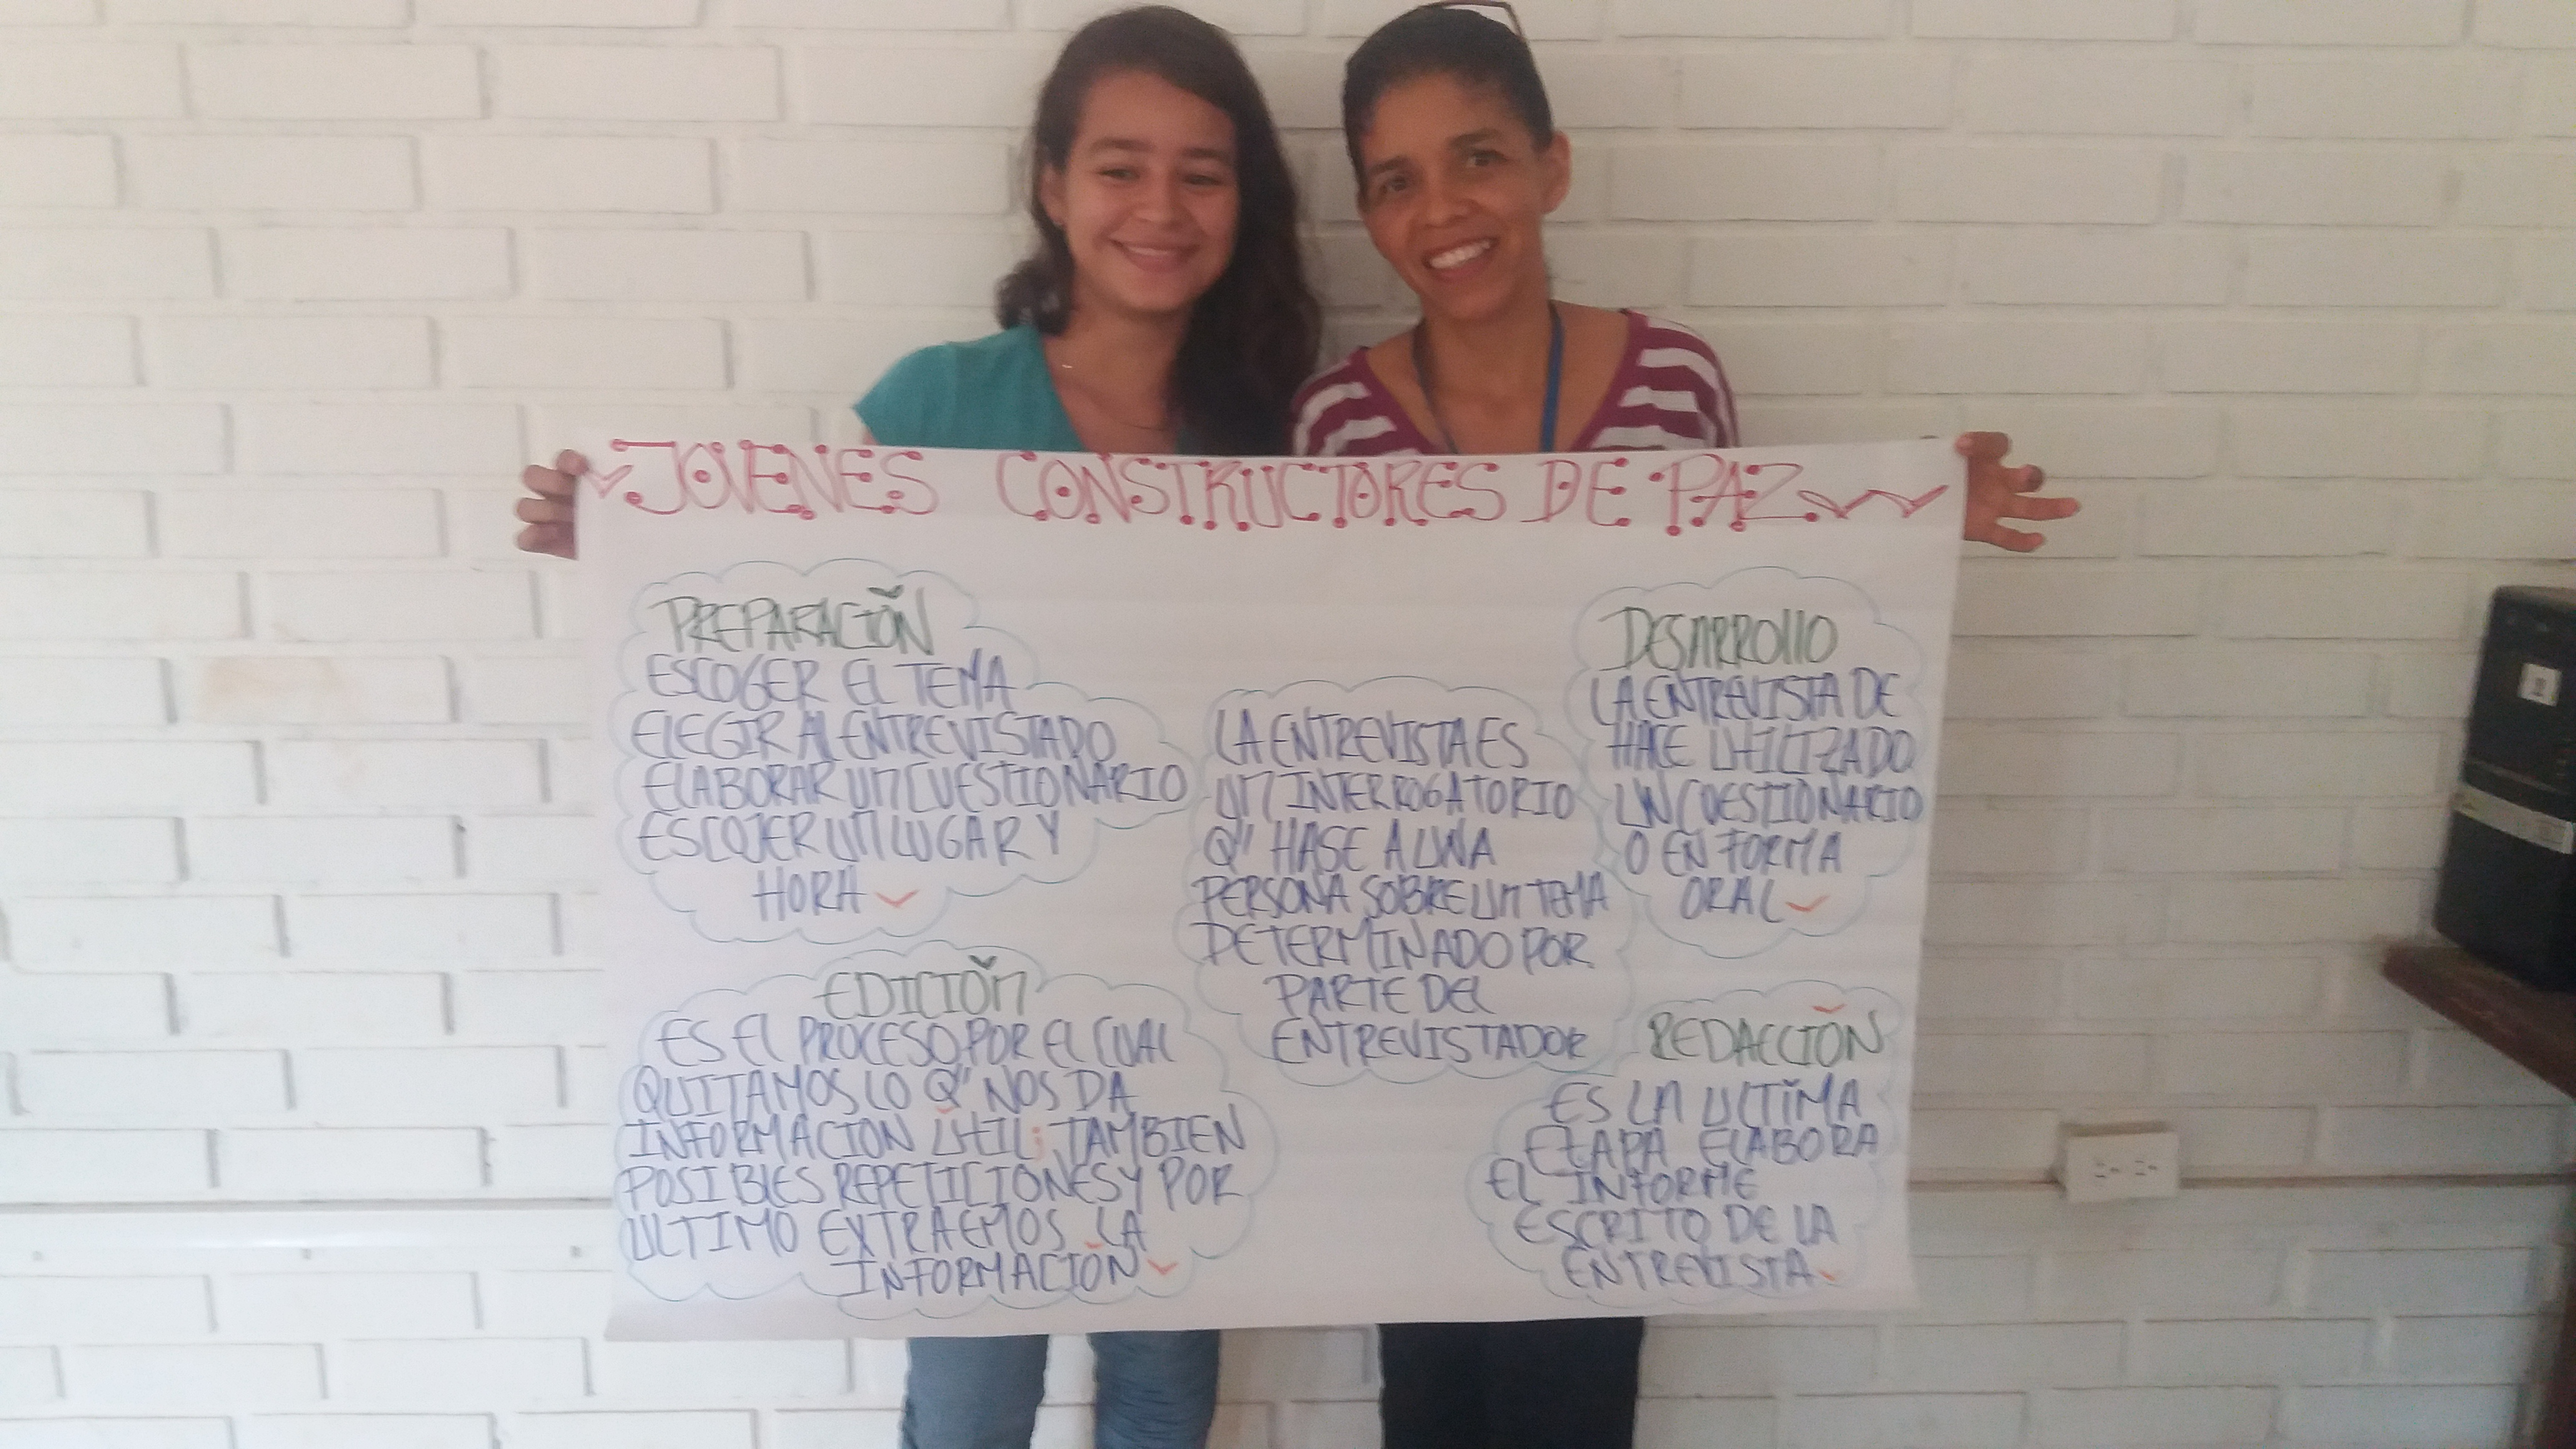 JOVENES CONSTRUCTORES DE PAZ
PREPARACIÓN
ESCOGER EL TEMA
ELEGIR AL ENTREVISTADO
ELABORAR UN CUESTIONARIO
ESCOJER UN LUGAR Y
HORA
LA ENTREVISTA ES
UN INTERROGATORIO
Q" HASE A UNA
PERSONA SOBRE UN TEMA
DETERMINADO POR
PARTE DEL
ENTREVISTADOR
DESARROLLO
LA ENTREVISTA DE
HACE UTILIZADO
UN CUESTIONARIO
O EN FORMA
ORAL
EDICIÓN
ES EL PROCESO POR EL CUAL
QUITAMOS LO Q" NOS DA
INFORMACION ÚTIL; TAMBIEN
POSIBLES REPETICIONES Y POR
ULTIMO EXTRAEMOS LA
INFORMACIÓN
REDACCIÓN
ES LA ULTIMA
ETAPA ELABORA
EL INFORME
ESCRITO DE LA
ENTREVISTA